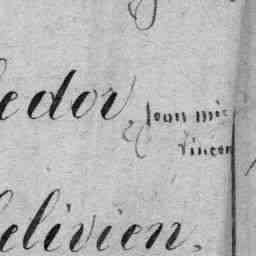 edor, Jean mic
Vincen
elivien,